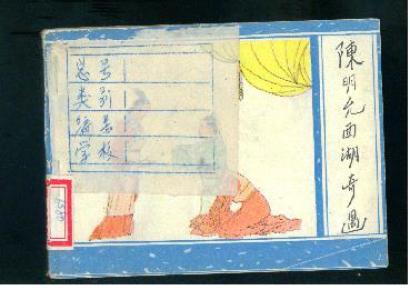 陳明允西湖奇遇
总号
类别
学校